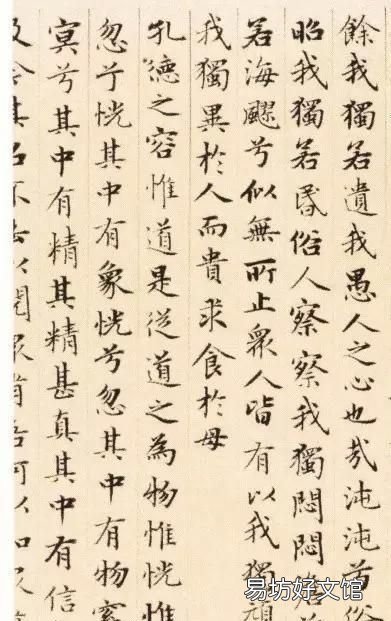 餘我獨若遺我愚人之心也哉沌沌首俗
昭我獨若昏俗人察察我獨悶悶澹
若海飂兮似無所止衆人皆有以我獨頑
我獨異於人而貴求食於母
孔德之容惟道是從道之為物惟恍惟
忽兮恍其中有象恍兮忽其中有物窈
冥兮其中有精其精甚真其中有信
及今其名不去以閱衆甫吾何以知衆
易坊好文馆